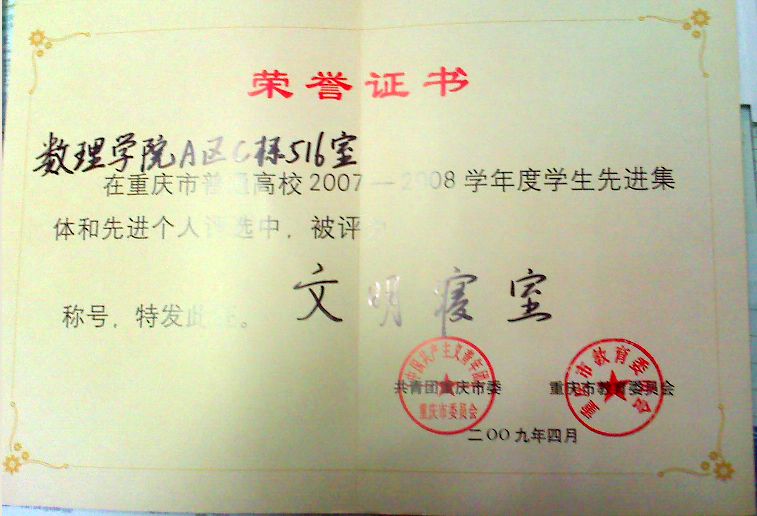 荣誉证书
数理学院A区C栋516室
在重庆市普通高校2007—2008学年度学生先进集
体和先进个人评选中，被评为
文明寝室
称号，特发此证。
中国共产主义青年团
重庆市委员会
共青团重庆市委
重庆市教育委员会
重庆市教育委员会
二OO九年四月